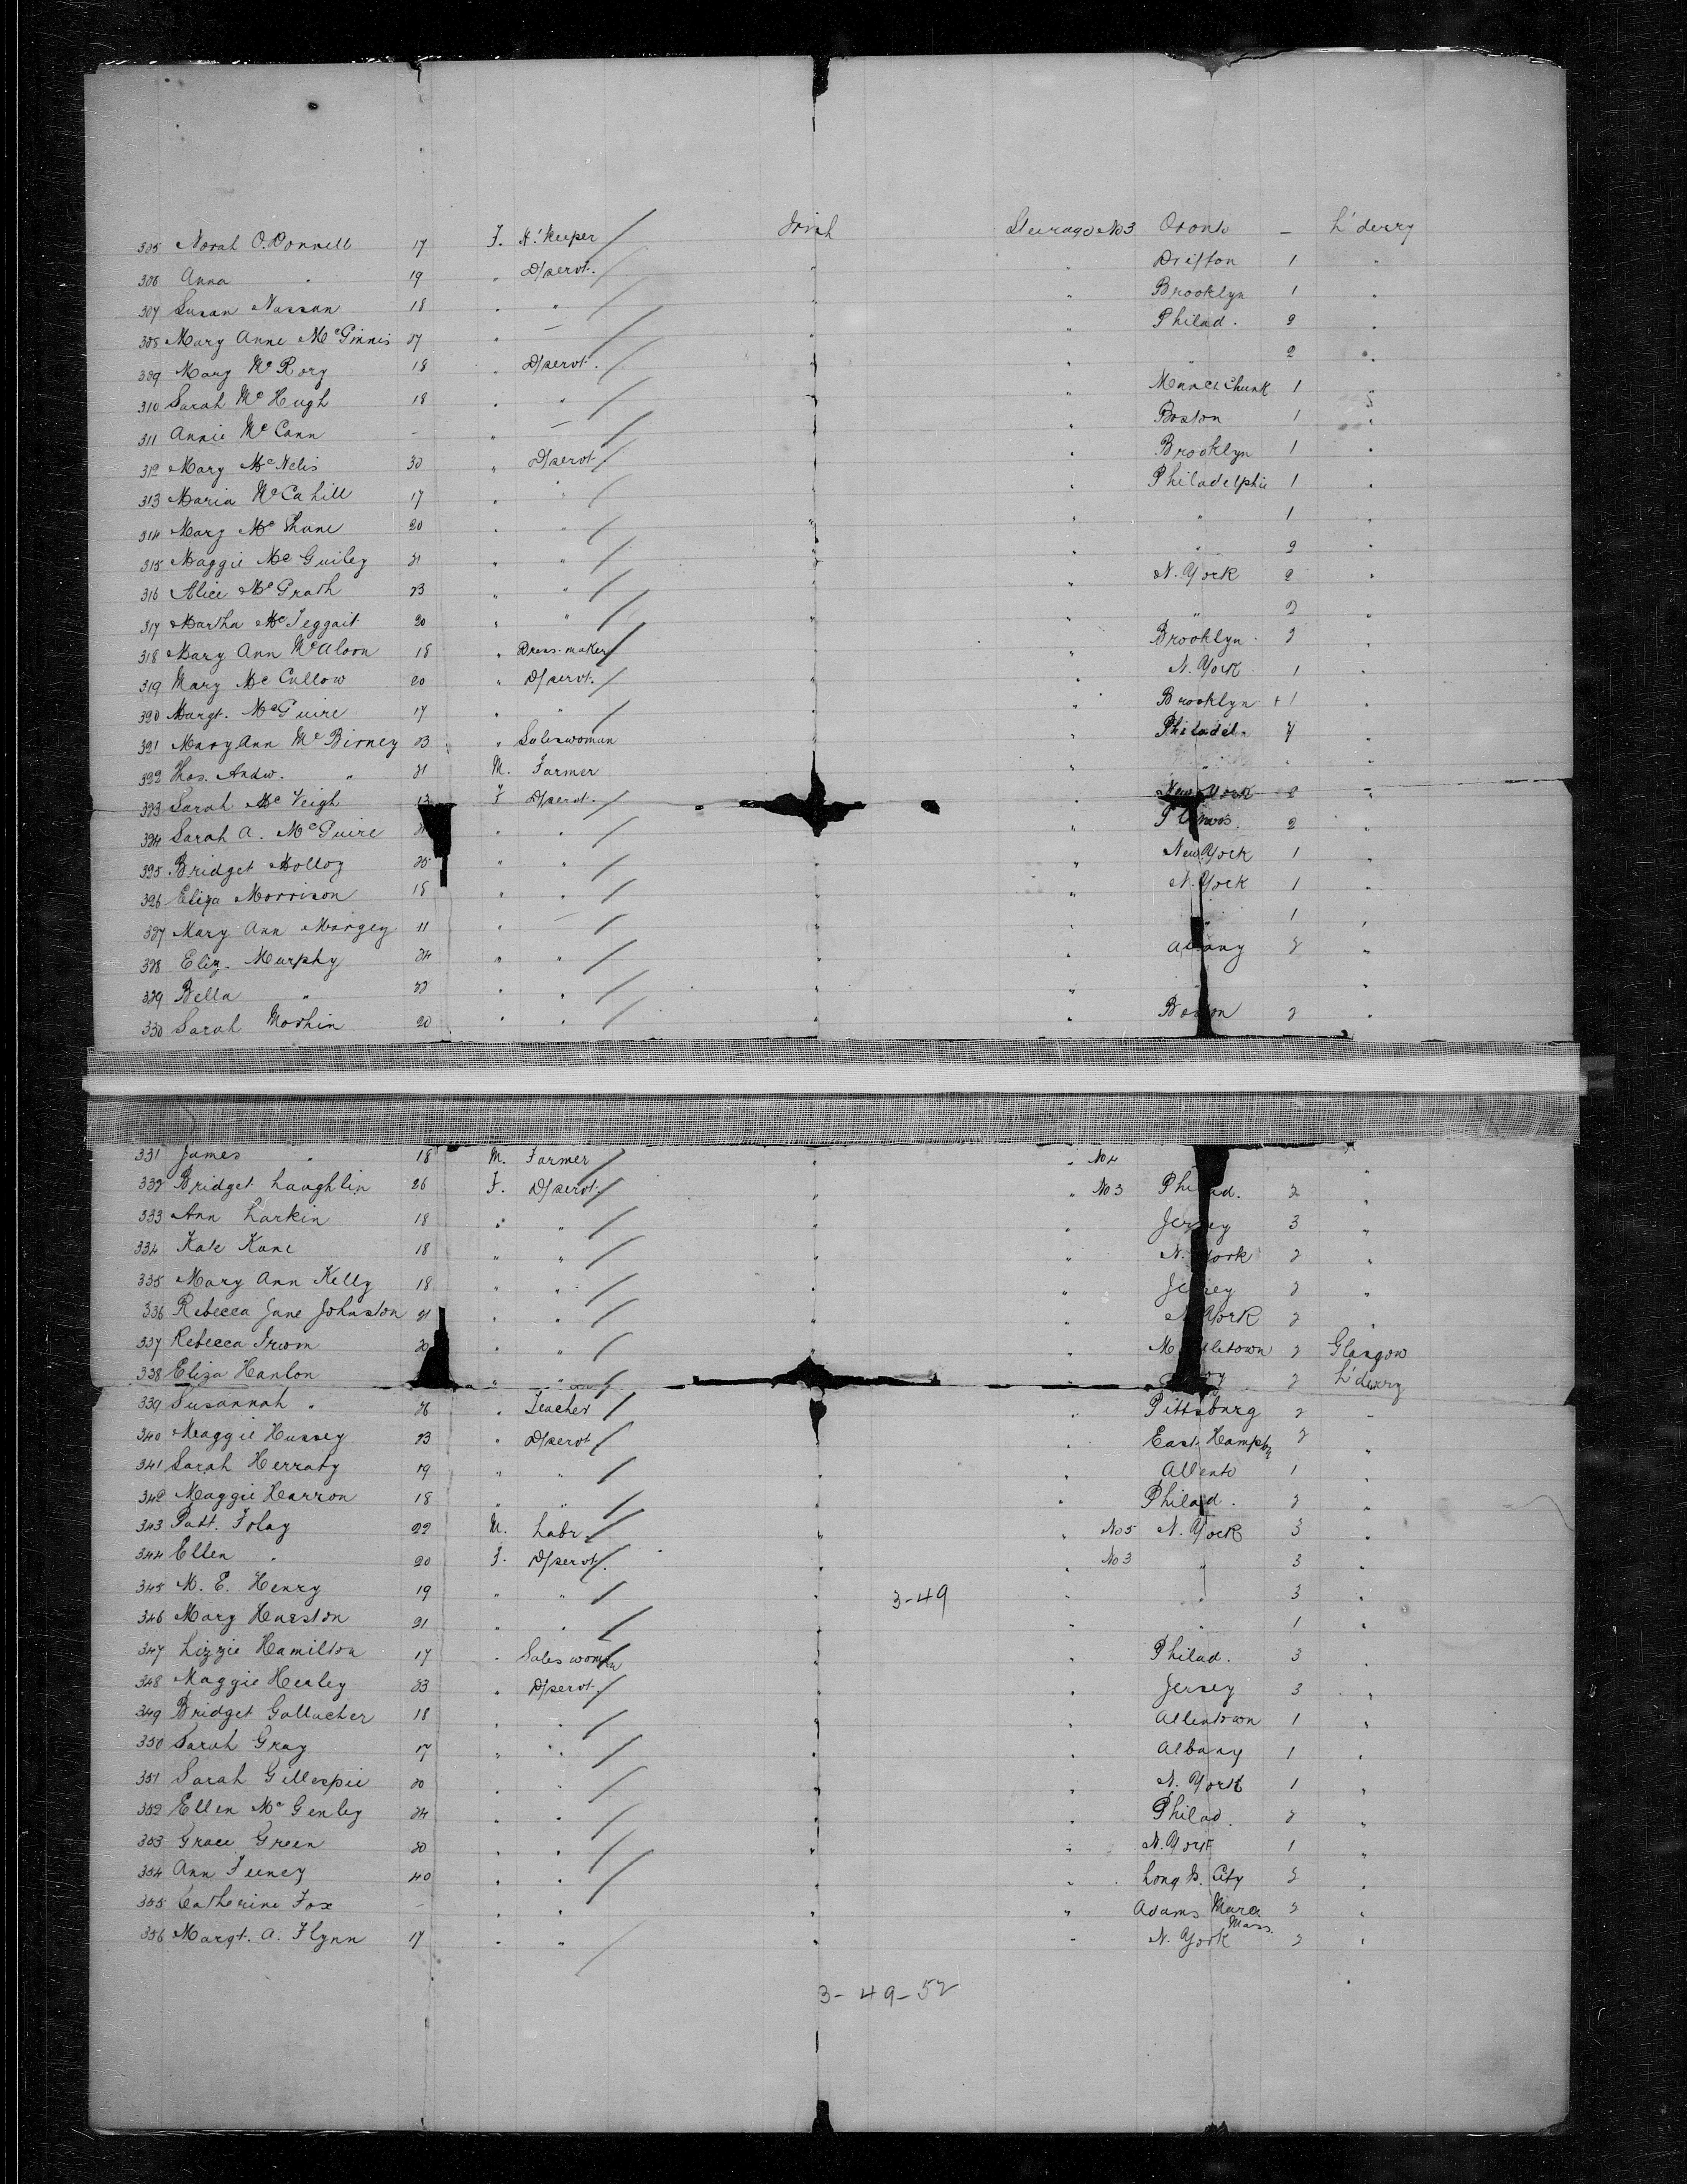 305 Norah O.Donnell 17 F. H'Keeper Irish Steerage No3 Oronto — L'derry
306 Anna " 19 " D/servt. " " Drifton 1 "
307 Susan Nassan 18 " " " " Brooklyn 1 "
308 Mary Anne McGinnis 27 " — " " Philad. 2 "
309 Mary McRory 18 " D/servt. " " " 2 "
310 Sarah McHugh 18 " " " " Chunk 1 "
311 Annie McCann — " — " " Boston 1 "
312 Mary McNelis 30 " D/servt. " " Brooklyn 1 "
313 Maria McCahill 17 " " " " Philadelphia 1 "
314 Mary McShane 20 " " " " " 1 "
315 Maggie McGuiley 21 " " " " " 2 "
316 Alice McGrath 23 " " " " N. York 2 "
317 Martha McTeggait 20 " " " " " 2 "
318 Mary Ann McAloon 18 " Dress-maker " " Brooklyn 2 "
319 Mary McCullow 20 " D/servt. " " N. York 1 "
320 Margt. McGuire 17 " " " " Brooklyn +1 "
321 Mary Ann McBirney 23 " Saleswoman " " Philadel. 7 "
322 Thos. Andw. " 21 M. Farmer " " " "
323 Sarah McVeigh F D/servt. " New York 2 "
324 Sarah A. McGuire " " " " 2 "
325 Bridget Molloy 25 " " " " New York 1 "
326 Eliza Morrison 18 " " " " N. York 1 "
327 Mary Ann Morgey 11 " — " " " 1 "
328 Eliz. Murphy 24 " " " " Albany 2 "
329 Bella " 22 " " " " "
330 Sarah Moohin 20 " " " " Boston 2 "
331 James " 18 M. Farmer " " No4 "
332 Bridget Laughlin 26 F. D/servt. " " No3 Philad. 2 "
333 Ann Larkin 18 " " " " Jersey 3 "
334 Kate Kane 18 " " " " N. York 2 "
335 Mary Ann Kelly 18 " " " " Jersey 2 "
336 Rebecca Jane Johnston 21 " " " " N. York 2 "
337 Rebecca Irwin 20 " " " " Middletown 2 Glasgow
338 Eliza Hanlon " " " 2 L'derry
339 Susannah " 26 " Teacher " Pittsburg 2 "
340 Maggie Hussey 23 " D/servt " East Hampton 2 "
341 Sarah Herraty 19 " " " " Allento 1 "
342 Maggie Harron 18 " " " " Philad. 2 "
343 Patt. Folay 22 M. Labr. " " No5 N. York 3 "
344 Ellen " 20 F. D/servt. " " No3 " 3 "
345 M. E. Henry 19 " " " 3-49 " " 3 "
346 Mary Hueston 21 " " " " " 1 "
347 Lizzie Hamilton 17 " Saleswoman " " Philad. 3 "
348 Maggie Healey 23 " D/servt. " " Jersey 3 "
349 Bridget Gallacher 18 " " " " Allentown 1 "
350 Sarah Gray 17 " " " " Albany 1 "
351 Sarah Gillespie 20 " " " " N. York 1 "
352 Ellen McGenley 24 " " " " Philad. 2 "
353 Grace Green 20 " " " " N. York 1 "
354 Ann Feeney 40 " " " " Long Is. City 2 "
355 Catherine Fox — " " " " Adams Mass. 2 "
356 Margt. A. Flynn 17 " " " " N. York 2 "
3-49-52